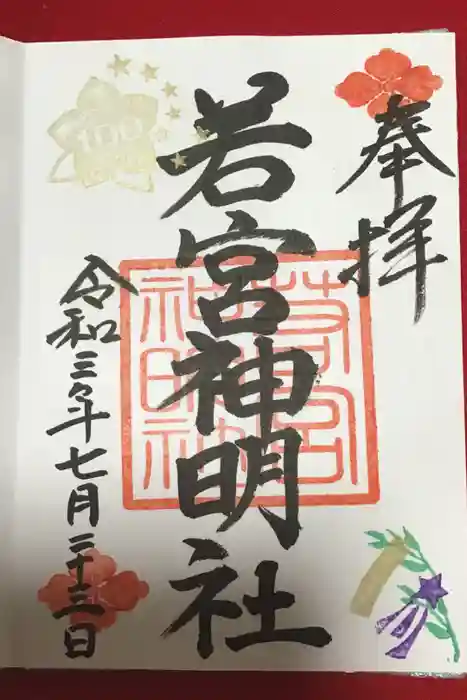 奉拝
若宮神明社
令和三年七月二十三日
若宮
神明社
100